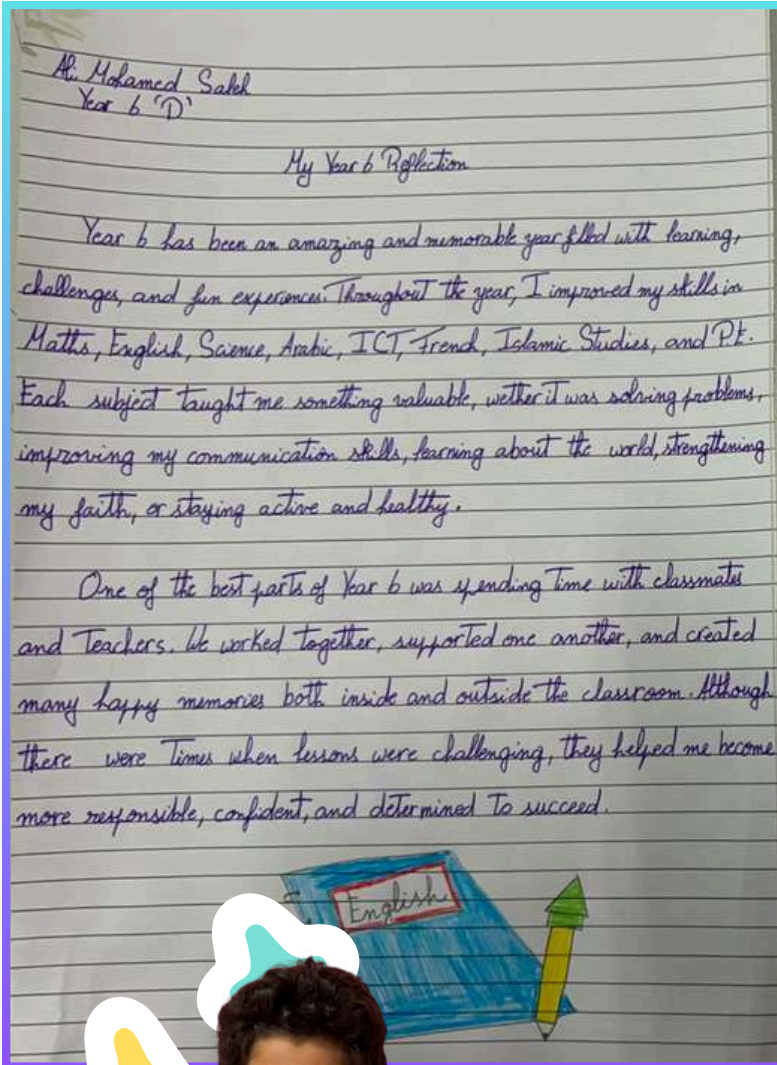 Ali Mohamed Saleh
Year 6 "D"
My Year 6 Reflection
Year 6 has been an amazing and memorable year filled with learning,
challenges, and fun experiences. Throughout the year, I improved my skills in
Maths, English, Science, Arabic, ICT, French, Islamic Studies, and P.E.
Each subject taught me something valuable, wether it was solving problems,
improving my communication skills, learning about the world, strengthening
my faith, or staying active and healthy.
One of the best parts of Year 6 was spending time with classmates
and Teachers. We worked together, supported one another, and created
many happy memories both inside and outside the classroom. Although
there were Times when lessons were challenging, they helped me become
more responsible, confident, and determined To succeed.
English